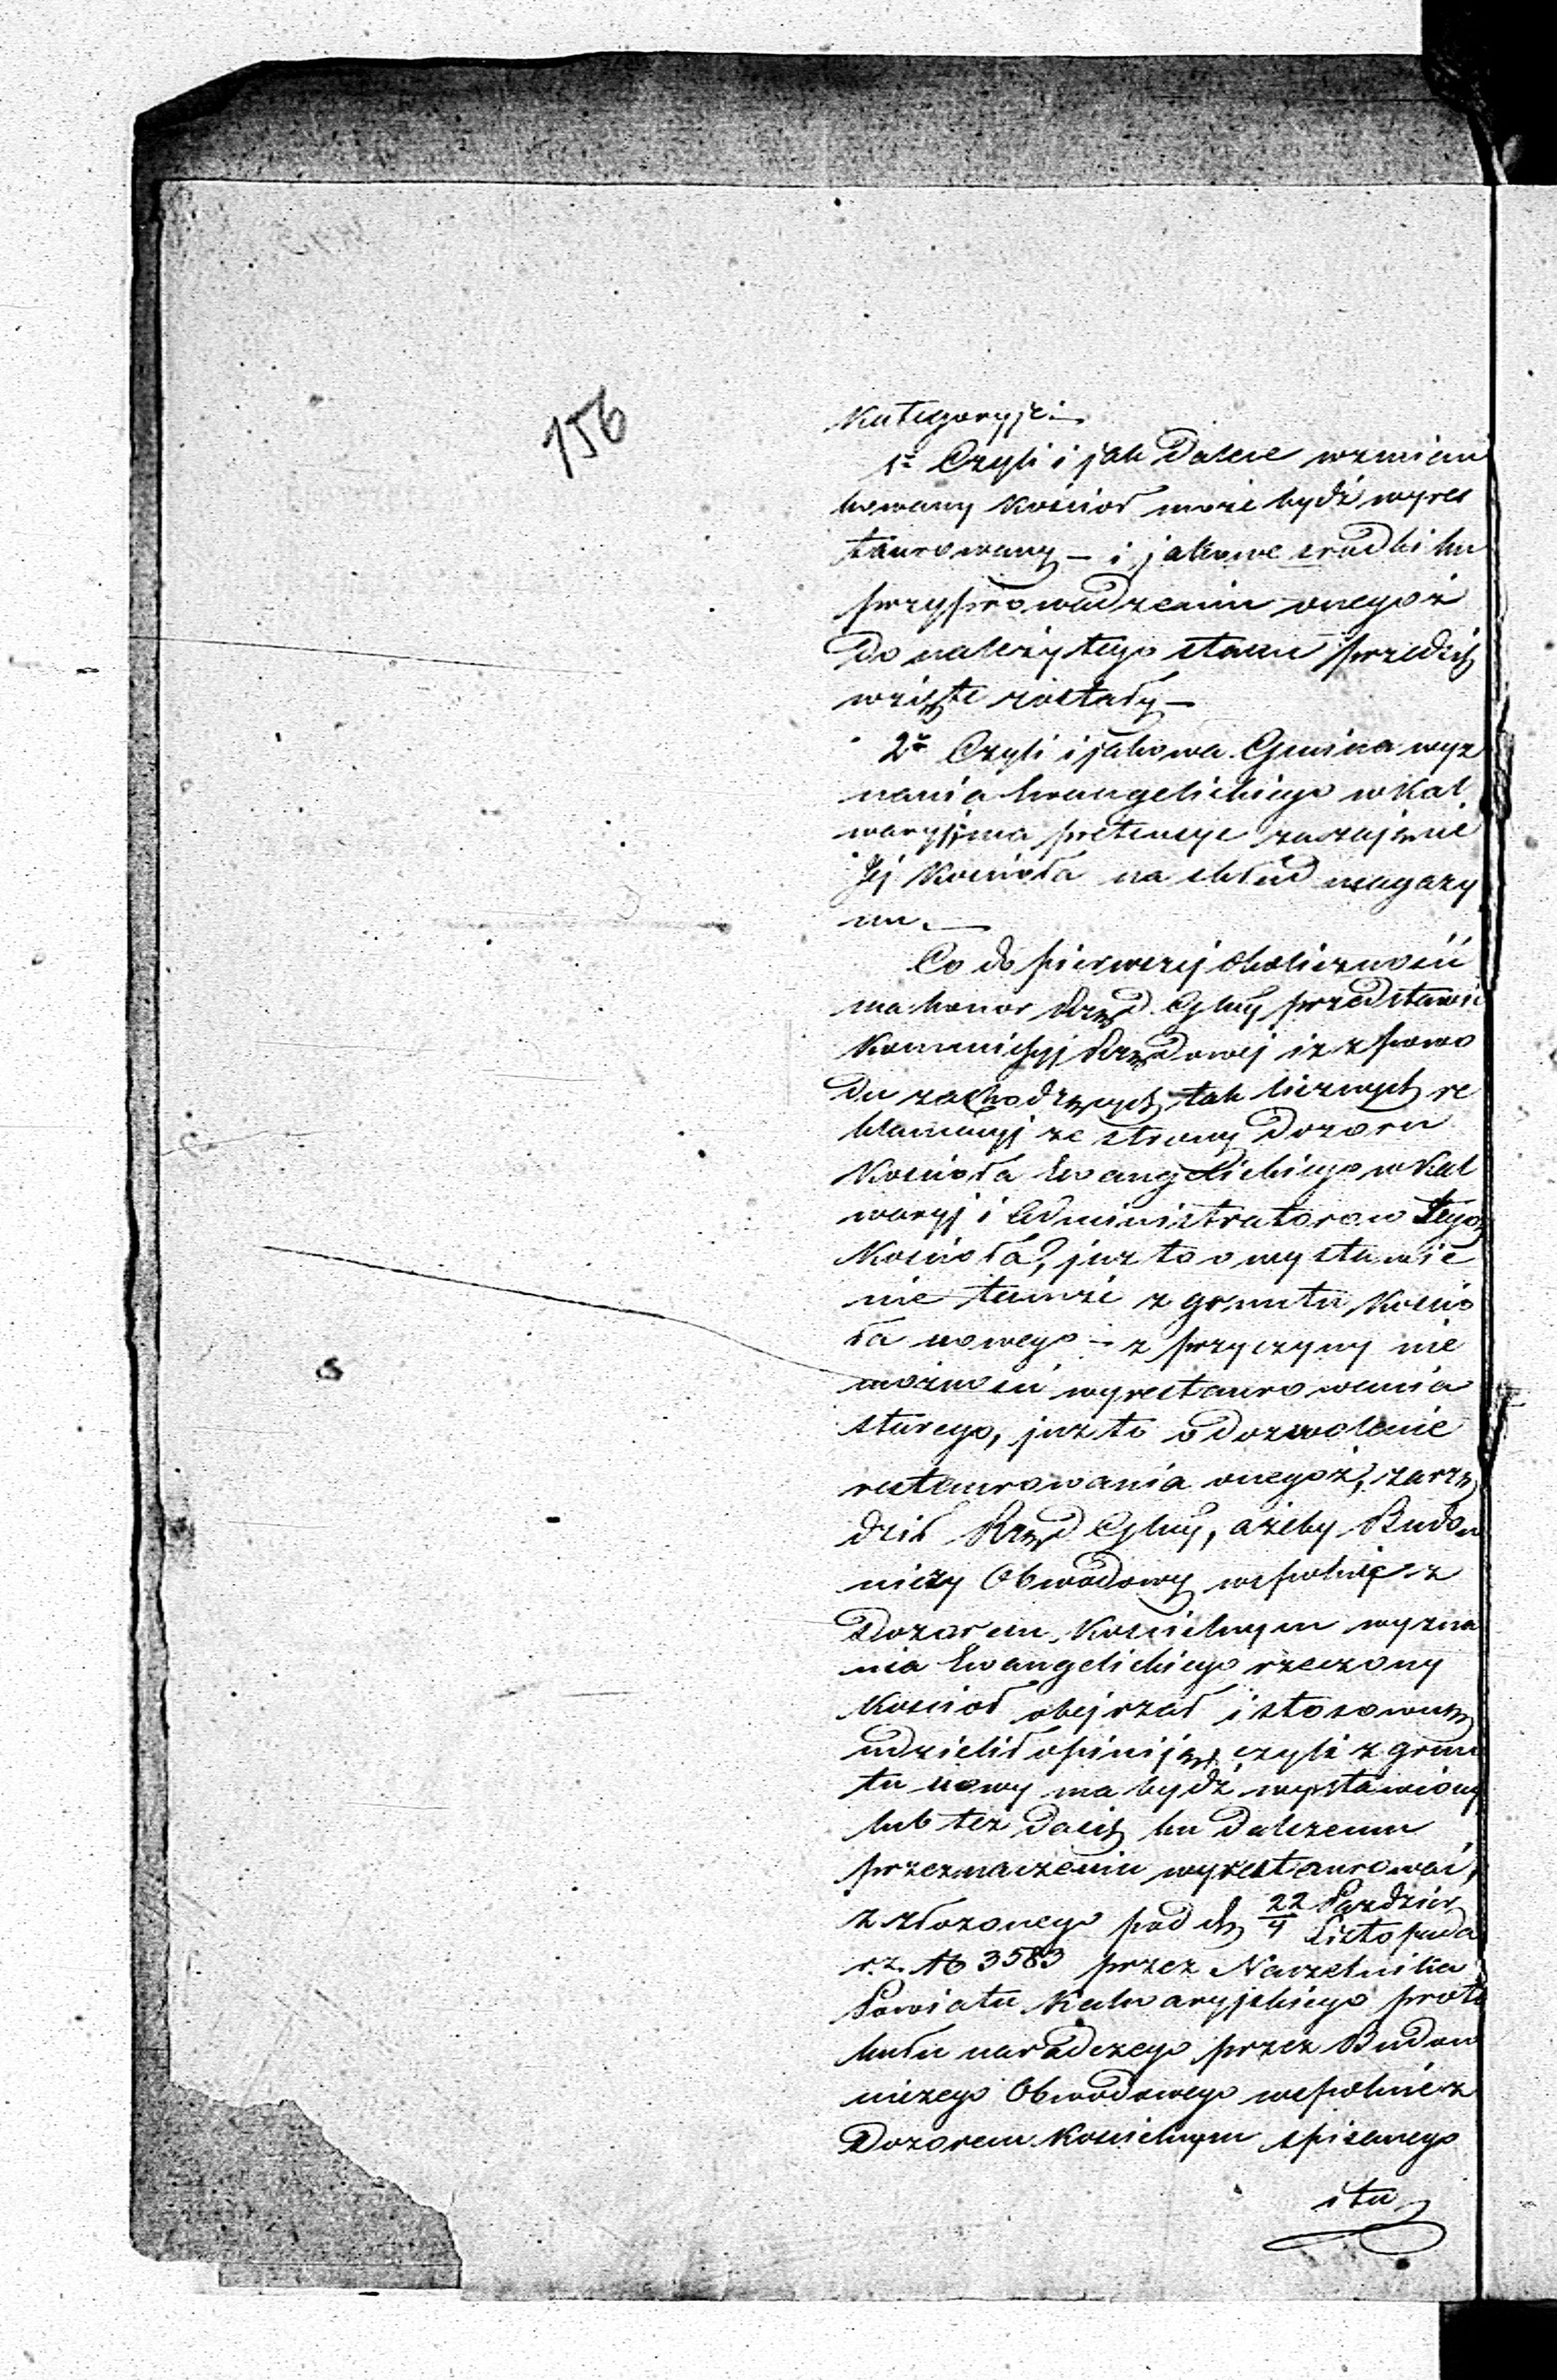 156
Kategoryje:
1° Czyli i jak Dalece wzmian
kowany Kościoł może bydź wyres
taurowany – i jakowe srodki ku
przyprowadzeniu onegoż
Do należytego stanu przedsię
wzięte zostały –
2° Czyli i jakowa Gmina wyz
nania Ewangelickiego w Kal
waryji ma pretensye za zajęcie
Jej Kościoła na skład magazy
nu. –
Co do pierwszej okoliczności
ma honor Rząd Gbny przedstawić
Kommissyj Rządowej iż z powo
du zachodzących tak licznych re
klamacyj ze strony Dozoru
Kościoła Ewangelickiego w Kal
waryj i Administratorow tegoż
Kościoła, już to o wystawie
nie tamże z gruntu Kościo
ła nowego – z przyczyny nie
możności wyrestaurowania
starego, już to o dozwolenie
restaurowania onegoż, zarzą
dził Rząd Gbny, ażeby Budow
niczy Obwodowy wspolnie z
Dozorem Kościelnym wyzna
nia Ewangelickiego rzeczony
Kościoł obejrzał i stosowną
udzielił opiniją, czyli z grun
tu nowy ma bydź wystawiony
lub też Dacią ku Dalszemu
przeznaczeniu wyrestaurować,
z złożonego pod dn 22 Pazdzier
4 Listopada
r. z. № 3583 przez Naczelnika
Powiatu Kalwaryjskiego proto
kułu naradczego przez Budow
niczego Obwodowego wspolnie z
Dozorem Kościelnym spisanego
i tu